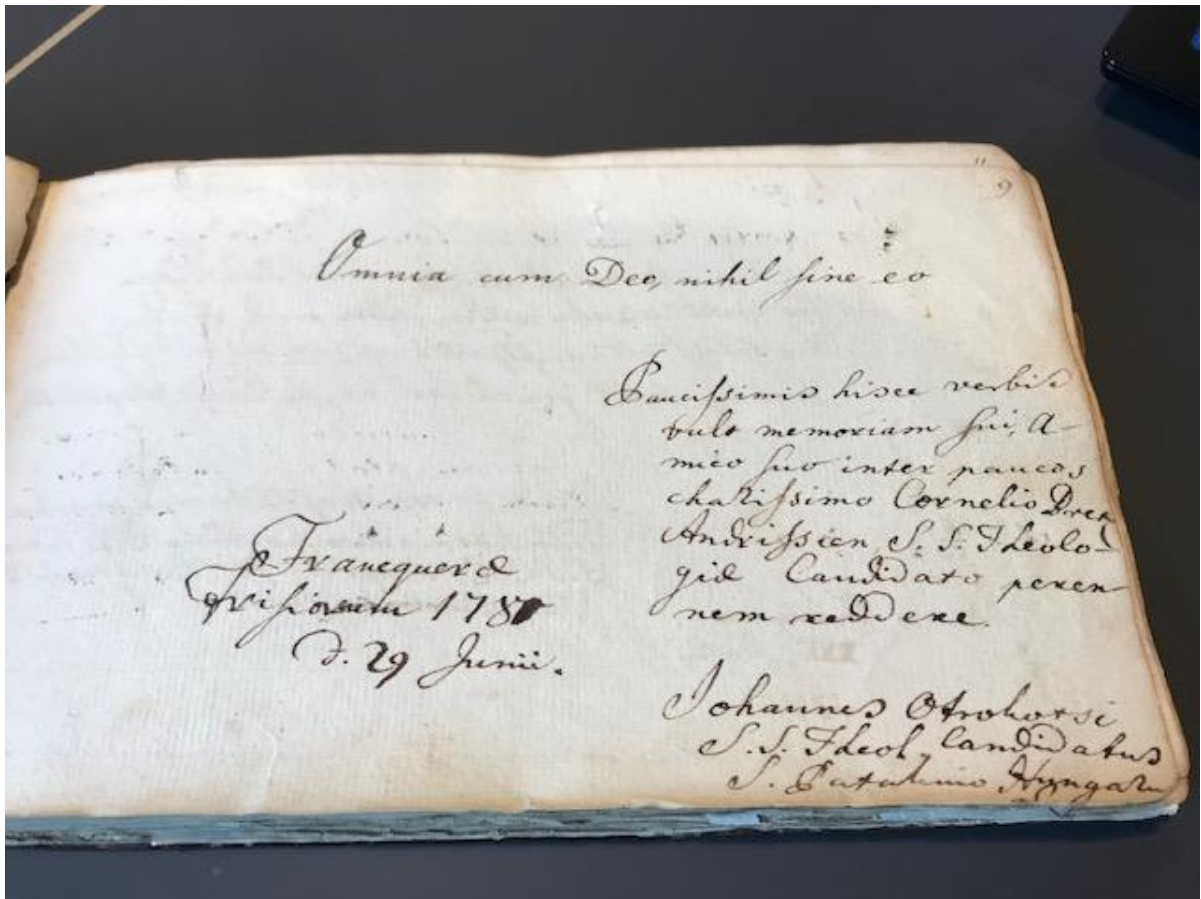 9
Omnia cum Deo, nihil sine eo
Paucissimis hisce verbis
vult memoriam sui, A-
mico suo inter paucos
charissimo Cornelio
Andrissien S. S. Theolo-
giæ Candidato peren-
nem reddere.
Franequeræ
Frisiorum 178
d. 29 Junii.
Johannes Otrokotsi
S. S. Theol. Candidatus
S. Patakino Hungarus